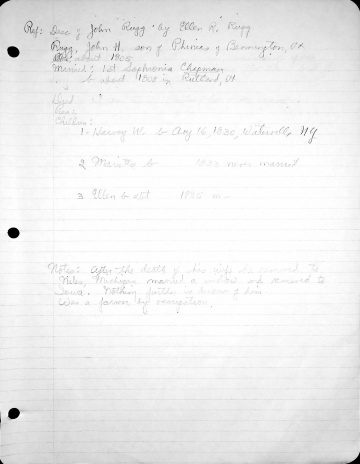 Ref: Desc of John Rugg by Ellen R. Rugg
Rugg, John H, son of Phineas of Bennington, Vt
about 1805
Married: 1st Sophronia Chapman
b about 1808 in Rutland, Vt
Died
Children:
1. Harvey W. b Aug 16, 1830, Waterville, NY
2 Marietta b 1833 never married
3 Ellen b abt 1835 m
Notes: After the death of his wife he removed to
Niles, Michigan married a widow and removed to
Iowa. Nothing further is known of him
Was a farmer by occupation.